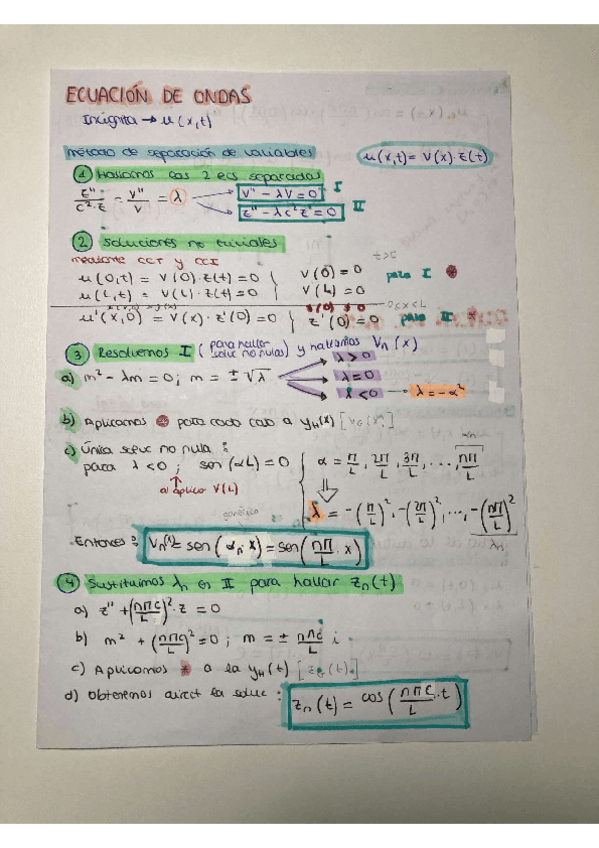 ECUACIÓN DE ONDAS
Incógnita → u(x,t)
método de separación de variables
u(x,t) = V(x)·z(t)
① Hallamos las 2 ecs separadas
z''/(c²·z) = v''/v = λ
V'' - λV = 0 I
z'' - λc²z = 0 II
② soluciones no triviales
mediante CCT y CCI
t>0
u(0,t) = V(0)·z(t) = 0 } V(0) = 0
u(L,t) = V(L)·z(t) = 0 } V(L) = 0 para I
0<x<L
u'(x,0) = V(x)·z'(0) = 0 } z'(0) = 0 para II
③ Resolvemos I (para hallar soluc no nulas) y hallamos Vn(x)
a) m² - λm = 0; m = ±√λ
λ > 0
λ = 0
λ < 0 → λ = -α²
b) Aplicamos para cada caso a yH(x) [VG(x)]
c) Única soluc no nula:
para λ < 0; sen(αL) = 0
a) aplico V(L)
αn
α = π/L, 2π/L, 3π/L, ..., nπ/L
λ = -(π/L)², -(2π/L)², ..., -(nπ/L)²
λn
Entonces: Vn(x) = sen(αn·x) = sen(nπ/L · x)
④ Sustituimos λn en II para hallar zn(t)
a) z'' + (nπc/L)²·z = 0
b) m² + (nπc/L)² = 0; m = ± nπc/L i
c) Aplicamos * a la yH(t) [zG(t)]
d) Obtenemos direct la soluc: zn(t) = cos(nπc/L · t)